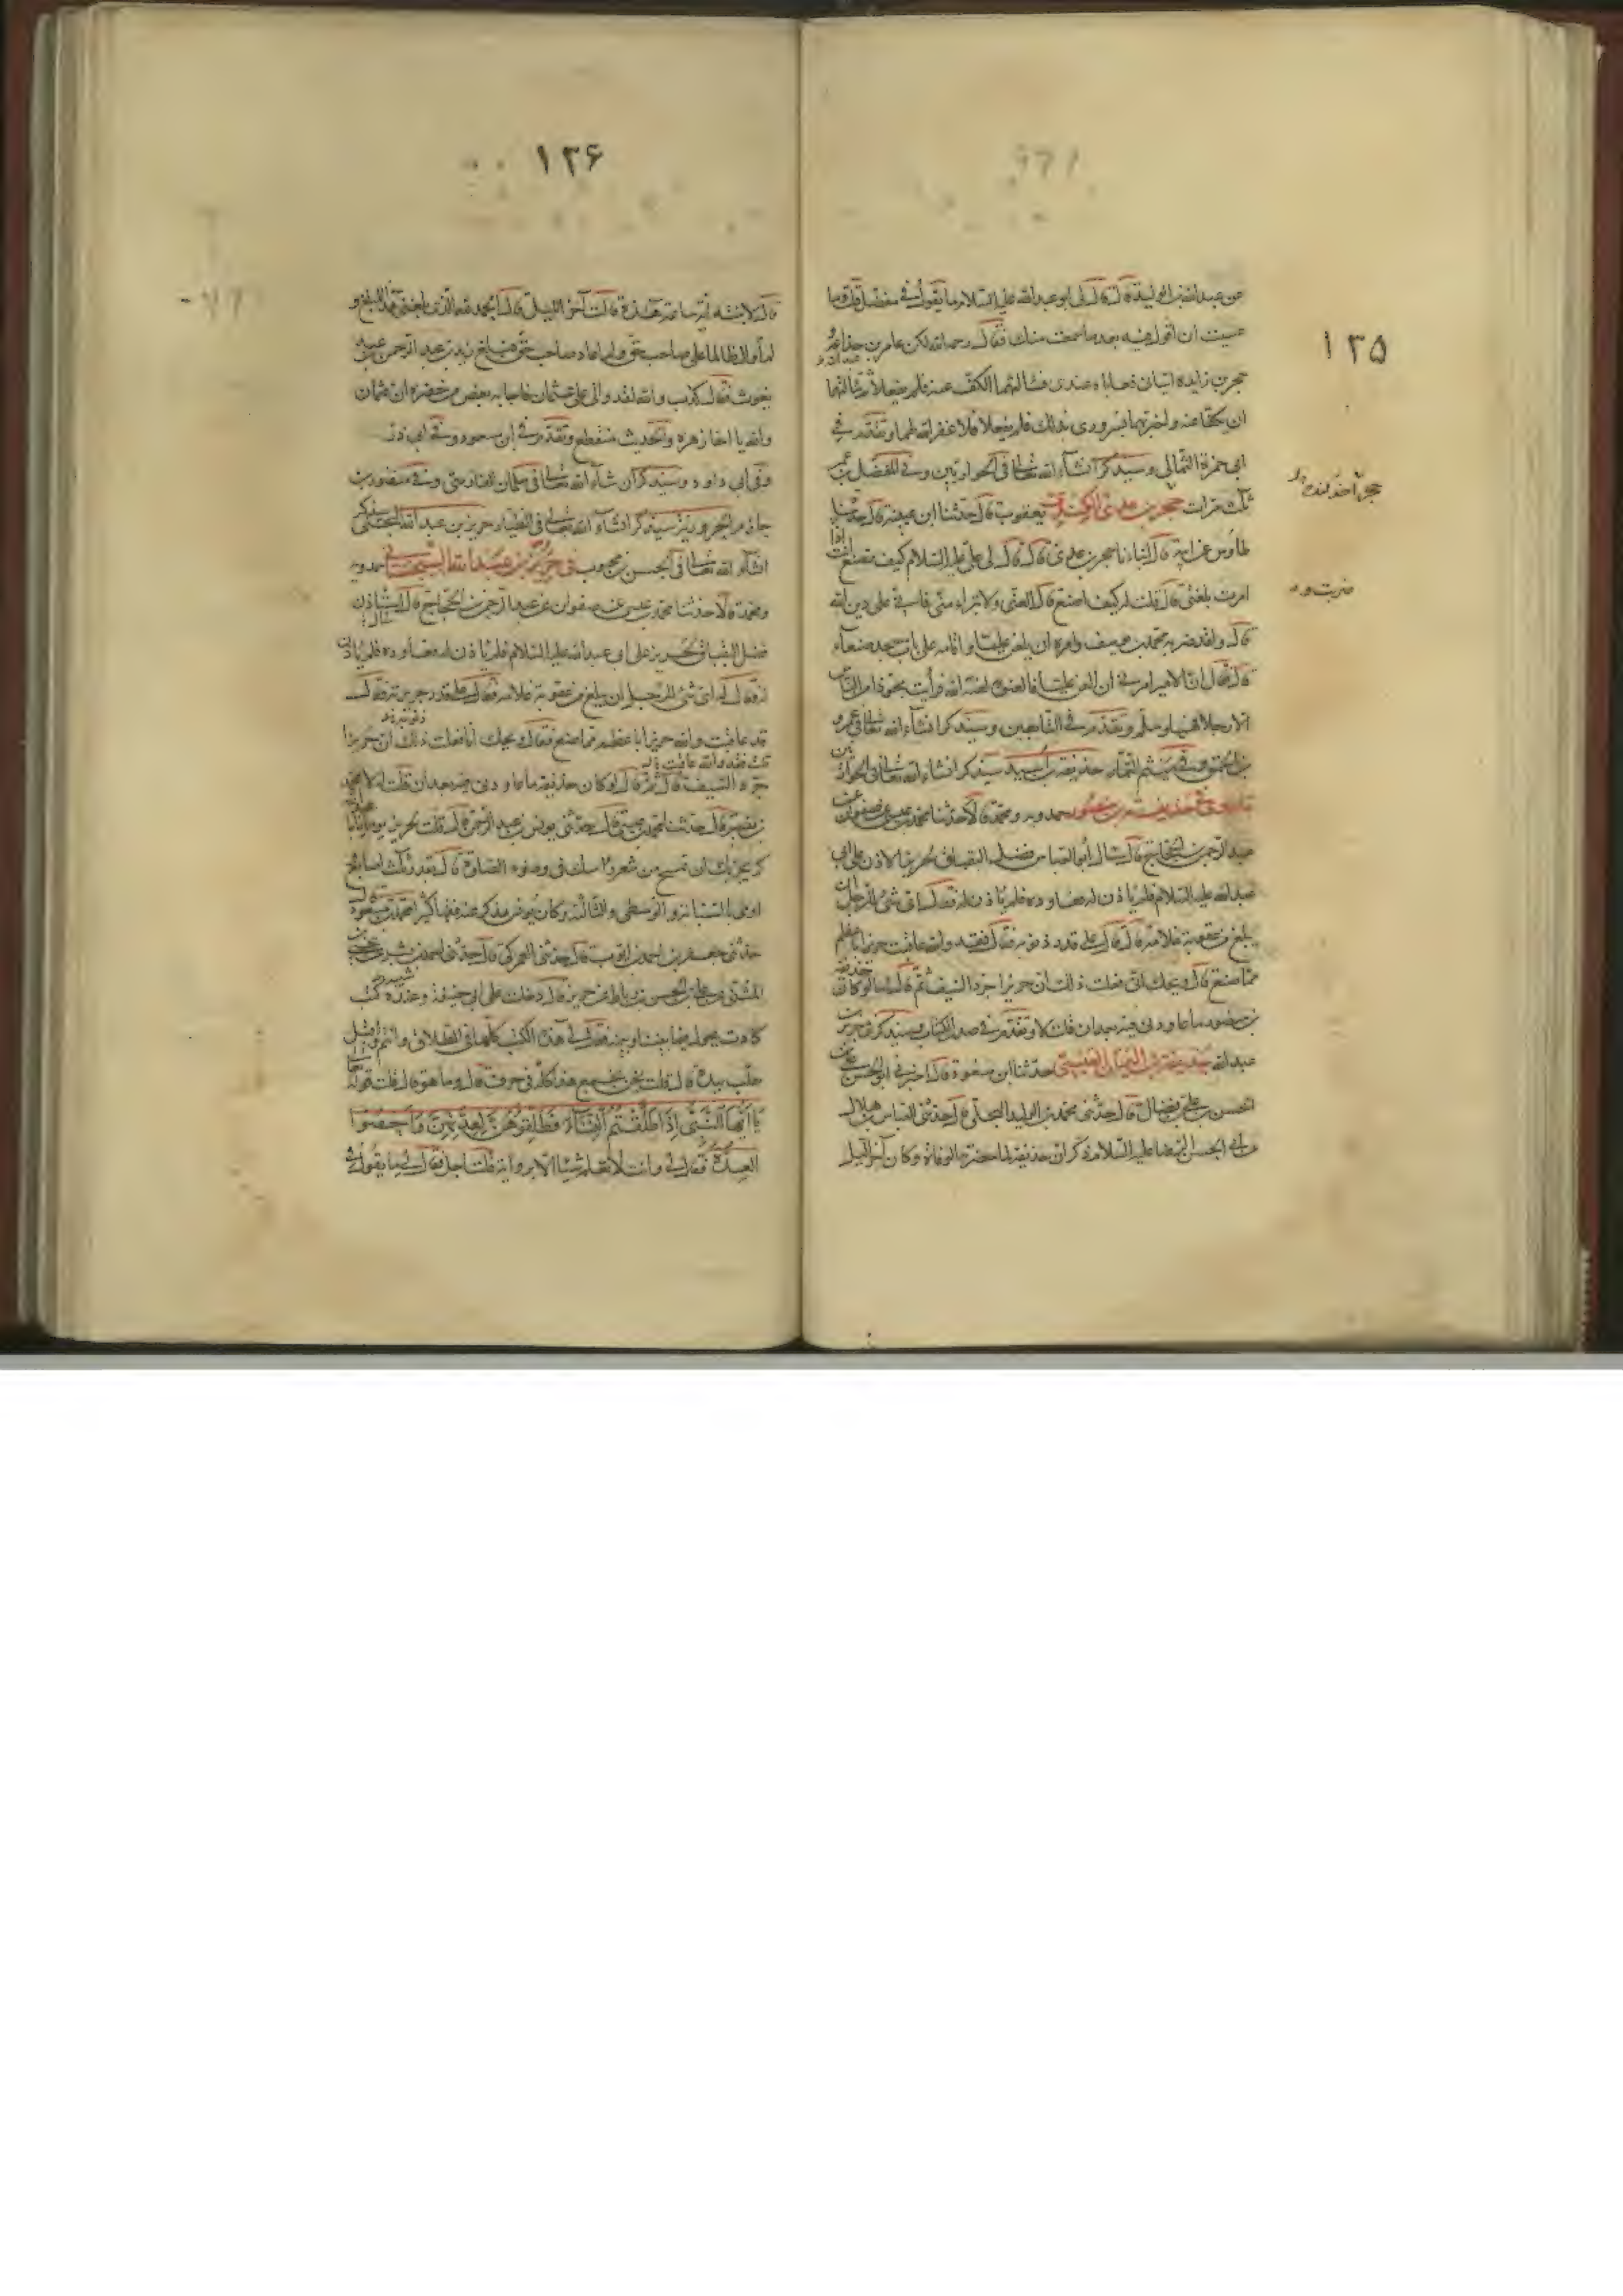 ۱۳۵
عن عبدالله بن الوليد قال قال لى ابو عبدالله عليه السلام ما يقول فى مفضل قلت وما
عسيت ان اقول فيه بعد ما سمعت منك فقال رحمه الله لكن عامر بن جذاعة
حجر بن زايده اتيانى فعاباه عندى فسألتهما الكف عنه فلم يفعلا ثم سألتهما
ان يكفا عنه واخبرتهما بسرورى بذلك فلم يفعلا فلا غفر الله لهما وتقدم فى
ابى حمزة الثمالى وسيذكر انشاء الله تعالى فى الحواريين وفى المفضل بن عمر
ثلث مرات حجر بن عدى الكندى يعقوب قال حدثنا ابن عيينة قال حدثنا
طاوس عن ابيه قال انباءنا حجر بن عدى قال قال لى على عليه السلام كيف تصنع انت اذا
امرت بلعنى قال قلت له كيف اصنع قال العنى ولا تبراء منى فانى على دين الله
قال ولقد ضربه محمد بن يوسف وامره ان يلعن عليا واقامه على باب مسجد صنعاء
قال فقال ان الامير امرنى ان العن عليا فالعنوه لعنه الله فرأيت مجوذا من الناس
الا رجلا فهمها وسلم وتقدم فى التابعين وسيذكر انشاء الله تعالى فى عمرو
بن الحمق وفى ميثم التمار حذيفة بن اسيد سيذكر انشاء الله تعالى فى الحواريين
حذيفة بن منصور حمدويه ومحمد قالا حدثنا محمد بن عيسى عن صفوان عن
عبد الرحمن بن الحجاج قال سال ابو العباس فضل البقباق لحريز الاذن على ابى
عبدالله عليه السلام فلم ياذن له فعاوده فلم ياذن له فقال اى شئ للرجل ان
يبلغ من عقوبة غلامه قال قال على قدر ذنوبه فقال فقد والله عاقبت حريزا باعظم
مما صنع قال ويحك انى فعلت ذلك ان حريزا جرد السيف ثم قال اما لو كان حذيفة
بن منصور ما عاودنى فيه بعد ان قلت لا وتقدم فى صدر الكتاب وسيذكر فى حريز بن
عبدالله حذيفة بن اليمان العبسى حدثنا ابن مسعود قال اخبرنى ابو الحسن على بن
الحسن بن على بن فضال قال حدثنى محمد بن الوليد البجلى قال حدثنى العباس بن هلال
عن ابى الحسن الرضا عليه السلام ذكر ان حذيفة لما حضرته الوفاة وكان آخر الليل
حجر
ضربت
۱۳۶
قال لابنته اية ساعة هذه قالت آخر الليل قال الحمد لله الذى بلغنى هذا المبلغ و
لم اوال ظالما على صاحب حق ولم اعاد صاحب حق فبلغ زيد بن عبد الرحمن بن عبد
يغوث فقال كذب والله لقد والى على عثمان فاجابه بعض من حضره ان عثمان
والاه يا اخا زهره والحديث منقطع وتقدم فى ابن مسعود وفى ابى ذر
وفى ابى داود وسيذكر ان شاء الله تعالى فى سلمان الفارسى وفى منصور بن
حازم الحر وزيز سيذكر انشاء الله تعالى فى الطيار حريز بن عبدالله البجلى سيذكر
انشاء الله تعالى فى الحسن بن محبوب فى حريز بن عبدالله السجستانى حمدويه
ومحمد قالا حدثنا محمد بن عيسى عن صفوان عن عبد الرحمن بن الحجاج قال استاذن
فضل البقباق لحريز على ابى عبدالله عليه السلام فلم ياذن له فعاوده فلم ياذن
له فقال له اى شئ للرجل ان يبلغ من عقوبة غلامه فقال على قدر جريرته فقال
قد عاقبت والله حريزا باعظم مما صنع فقال ويحك انا فعلت ذلك ان حريزا
جرد السيف قال ثم قال لو كان حذيفة ما عاودنى فيه بعد ان قلت له لا محمد
بن نصير قال حدثنا محمد بن عيسى قال حدثنى يونس بن عبد الرحمن قال قلت لحريز يوما يا ابا عبدالله
كم يجزيك ان تمسح من شعر راسك فى وضوء الصلوة قال بقدر ثلث اصابع
اومى بالسبابة والوسطى والثالثة وكان يونس يذكر عنه فقها كثيرا محمد بن مسعود
حدثنى جعفر بن احمد بن ايوب قال حدثنى العمركى قال حدثنى احمد بن شيبة عن يحيى بن
المثنى عن على بن الحسن بن رباط عن حريز قال دخلت على ابى حنيفة وعنده كتب
كادت يحول فيما بيننا وبينه فقال لى هذه الكتب كلها فى الطلاق وانتم واقبل
يقلب بيده قال قلت نحن نجمع هذا كله فى حرف قال وما هو قال قلت قوله تعالى
يا ايها النبى اذا طلقتم النساء فطلقوهن لعدتهن واحصوا
العدة فقال لى وانت لا تعلم شيئا الا برواية قلت اجل فقال لى ما يقول فى